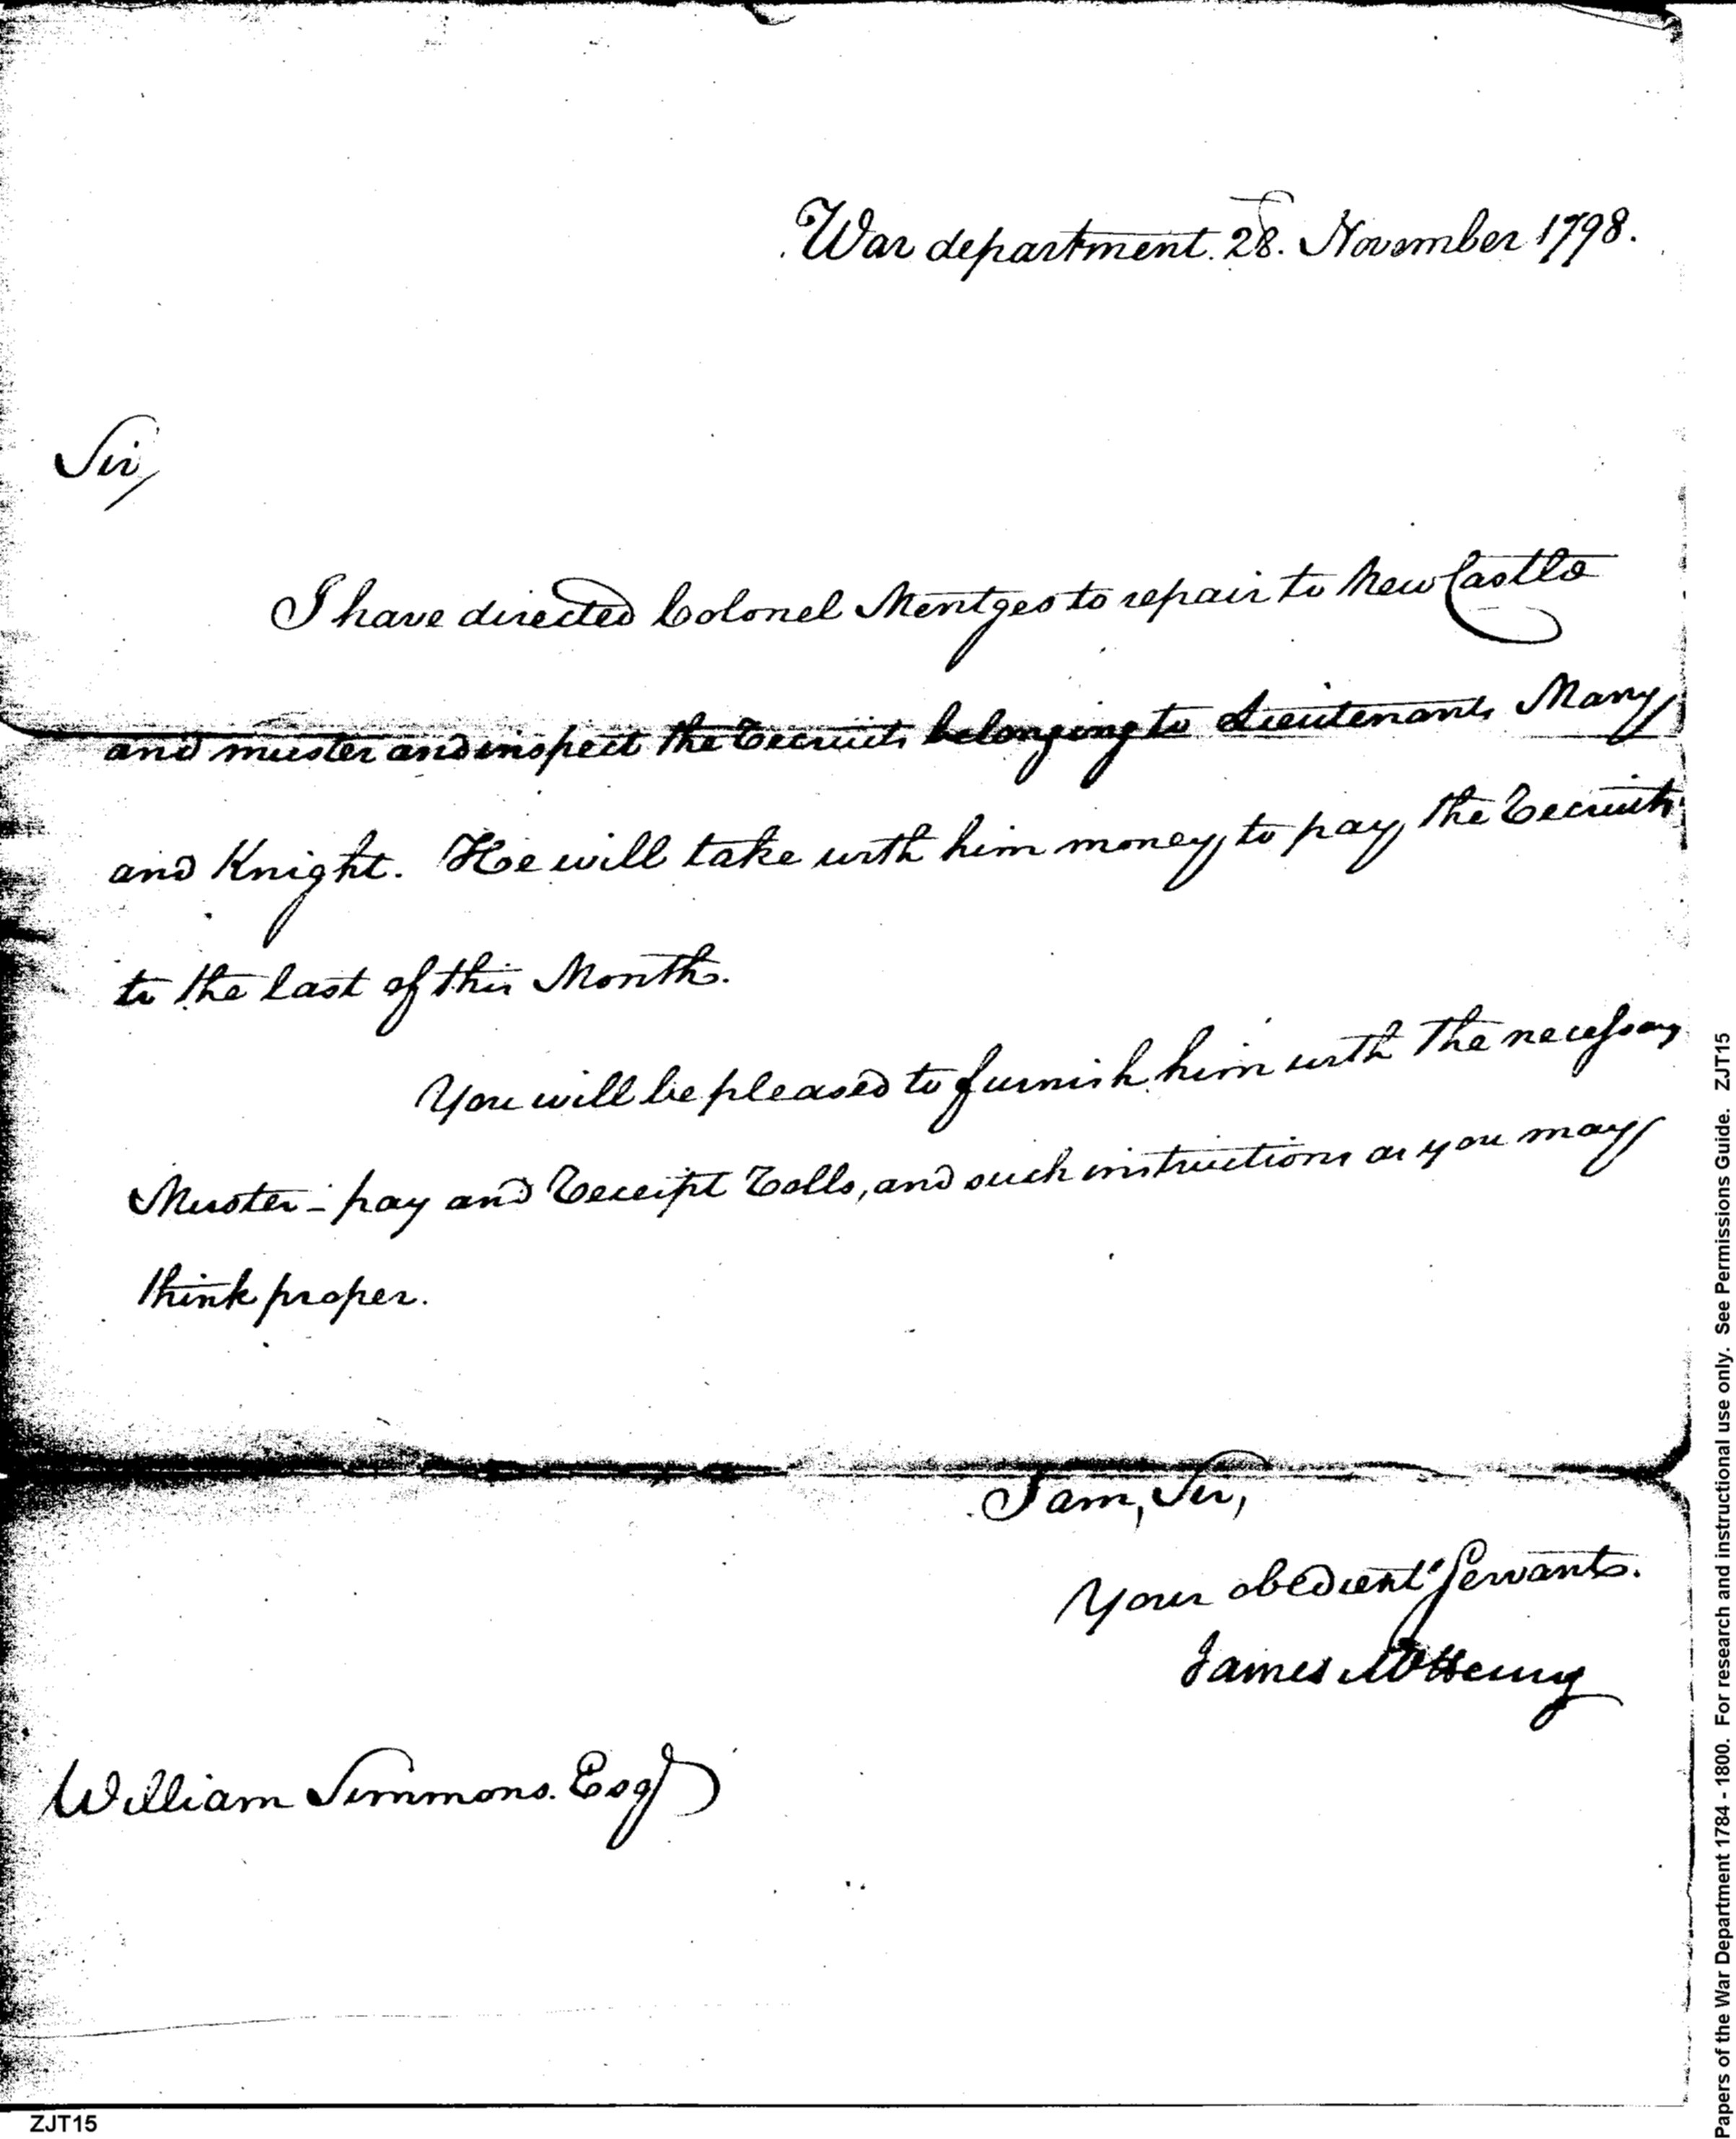 War department. 28. November 1798.
Sir,
I have directed Colonel Mentges to repair to New Castle
and muster and inspect the Recruits belonging to Lieutenants Many
and Knight. He will take with him money, to pay, the Recruits
to the last of this Month.
You will be pleased to furnish him with the necessary
Muster - pay and Receipt Rolls, and such instructions as you may
think proper.
I am, Sir,
Your obedient Servant.
James McHenry
William Simmons. Esqr
ZJT15
Papers of the War Department 1784 - 1800. For research and instructional use only. See Permissions Guide. ZJT15